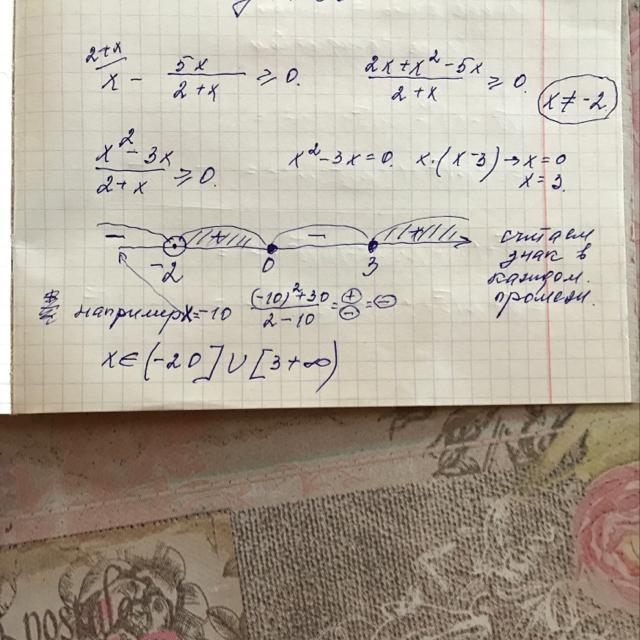 2+x/x - 5x/2+x ≥ 0. 2x+x²-5x/2+x ≥ 0. x ≠ -2
x²-3x/2+x ≥ 0. x²-3x=0. x·(x-3) → x=0
x=3.
- + - +
-2 0 3
считаем
знак в
каждом.
промеж.
например x=-10 (-10)²+30/2-10 = ⊕/⊖ = ⊖
x∈(-2 0]∪[3+∞)
nostales